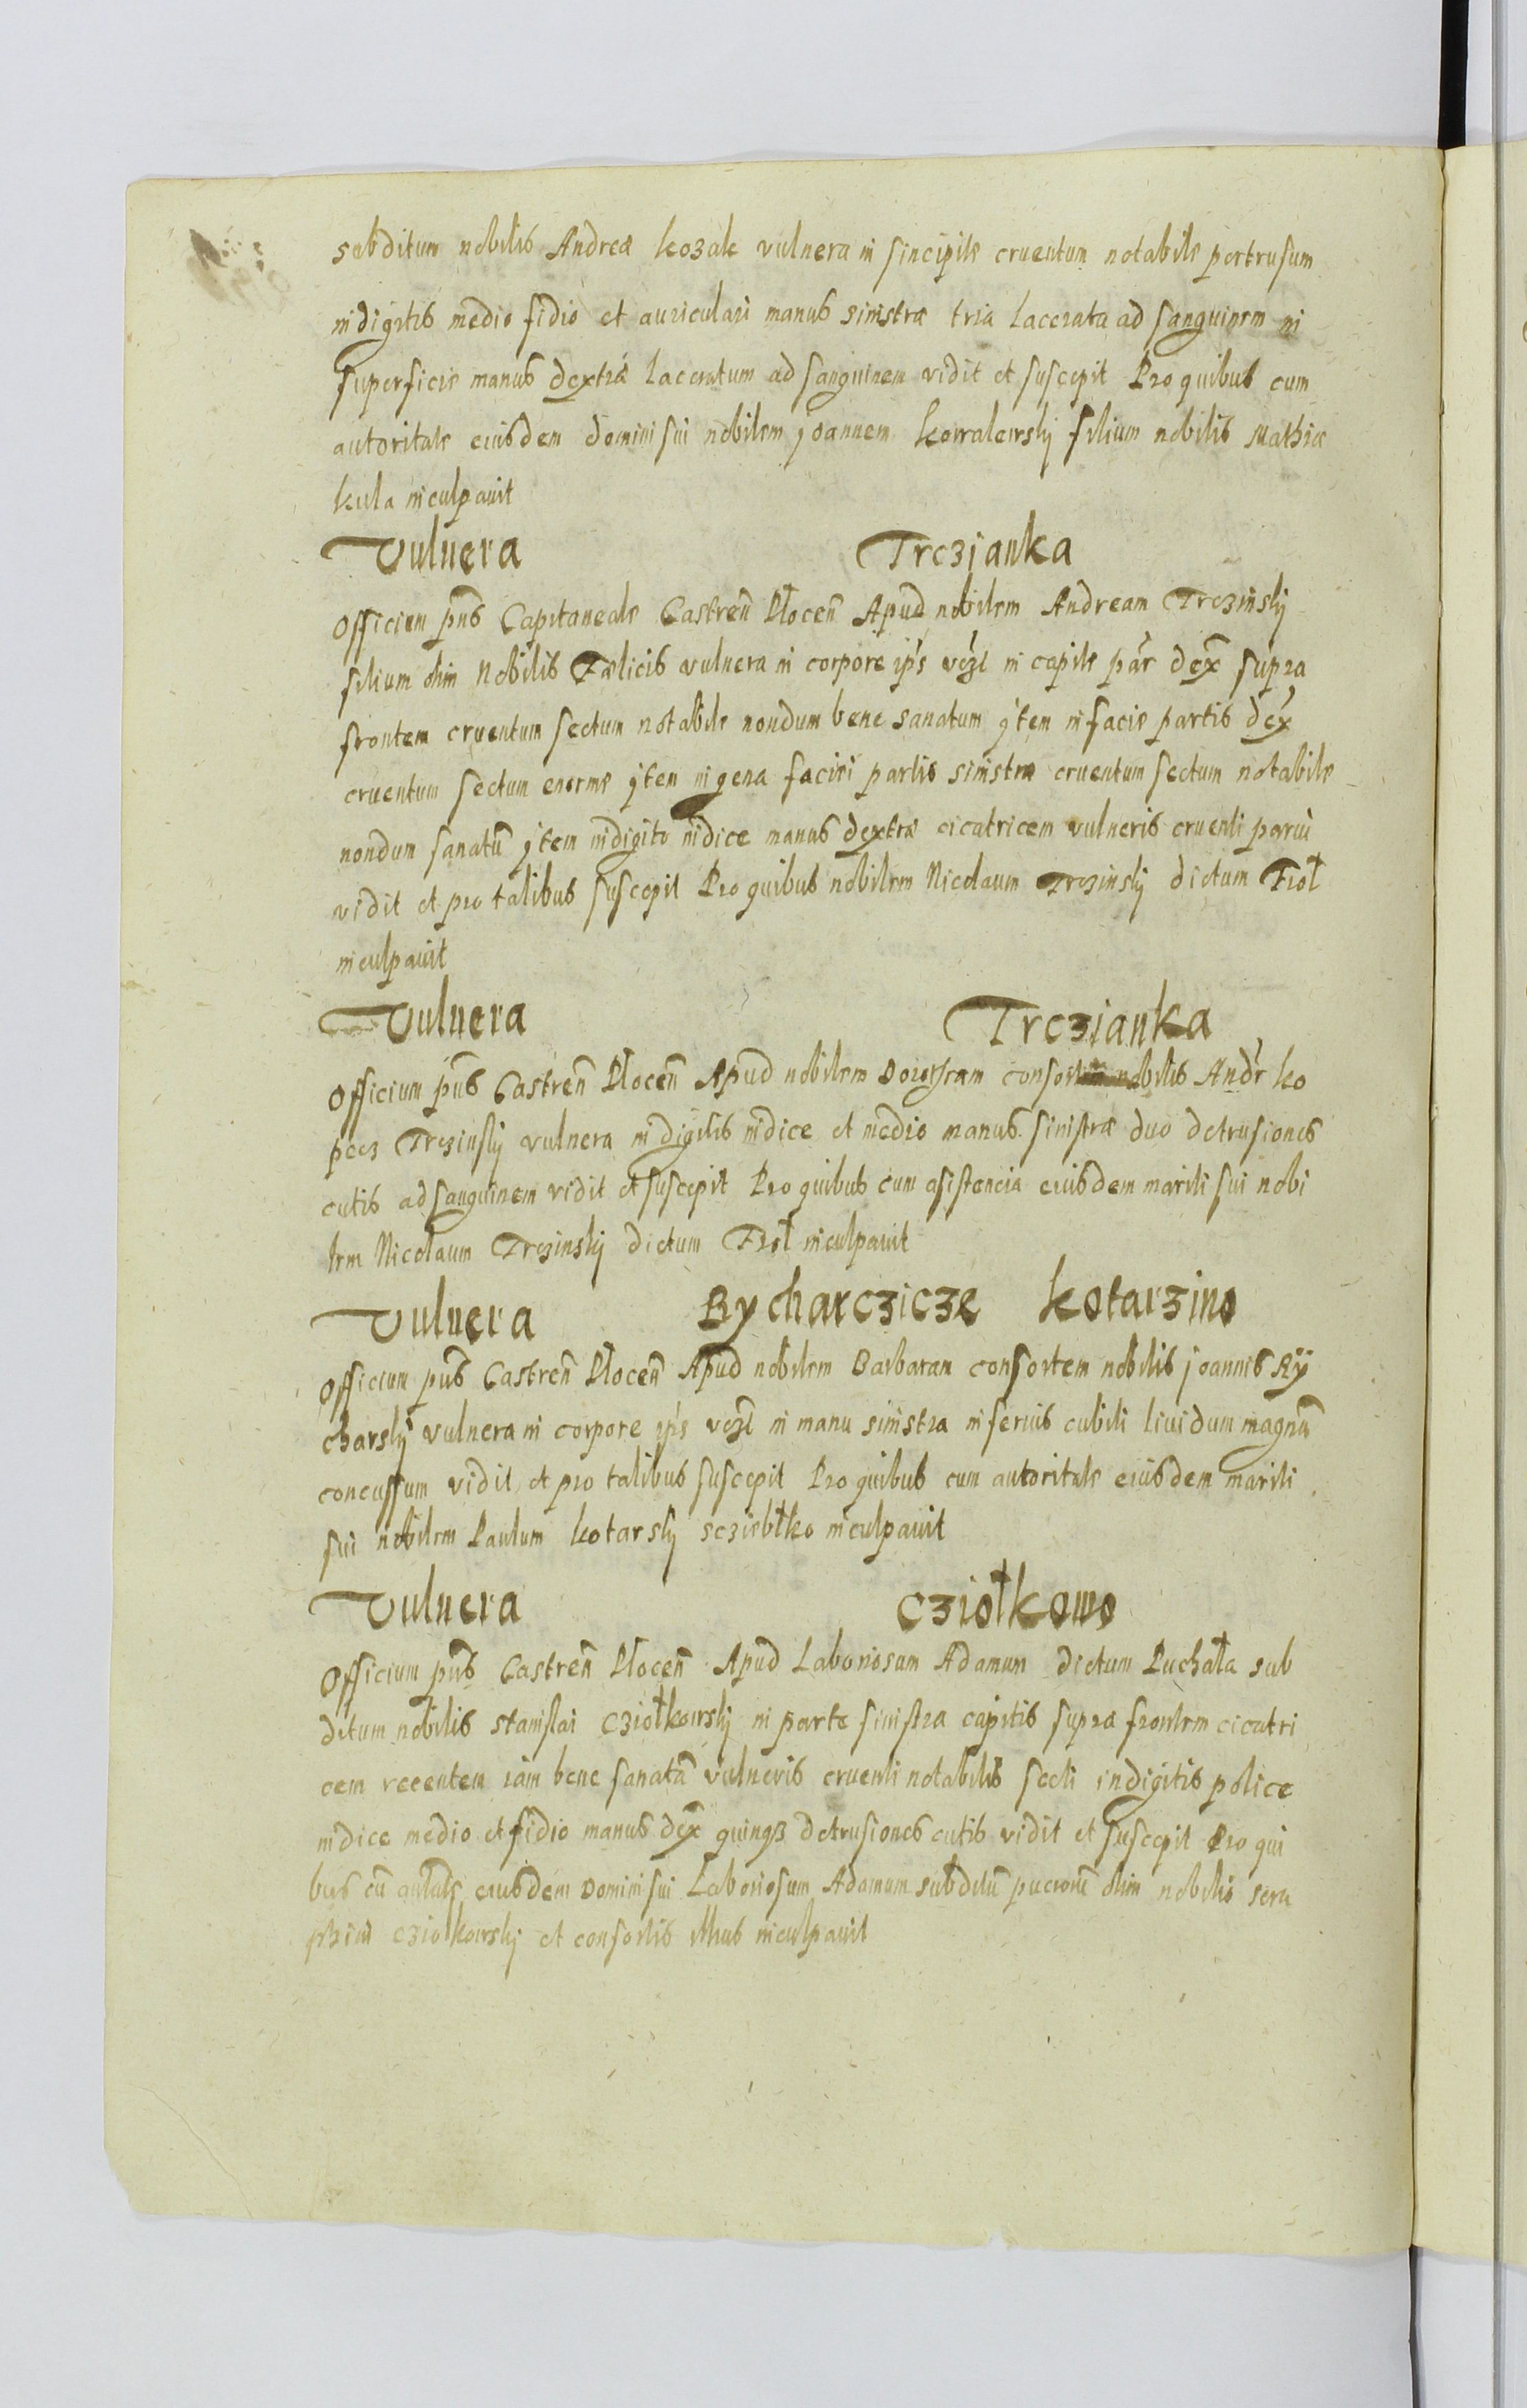 subditum nobilis Andreæ kozak vulnera in sincipite cruentum notabile pertrusum
in digitis medio fidio et auriculari manus sinistræ tria lacerata ad sanguinem in
superficie manus dextræ laceratum ad sanguinem vidit et suscepit Pro quibus cum
autoritate eiusdem domini sui nobilem joannem kowalewsky filium nobilis Mathiæ
kula inculpavit
Vulnera Trczianka
Officium pñs Capitaneale Castreñ Płoceñ Apud nobilem Andream Trczinsky
filium olim Nobilis Fœlicis vulnera in corpore ip̃s vczl in capite par dex̃ supra
frontem cruentum sectum notabile nondum bene sanatum jtem in facie partis dex̃
cruentum sectum enorme jtem in gena faciei partis sinistræ cruentum sectum notabile
nondum sanatũ jtem in digito indice manus dextræ cicatricem vulneris cruenti parui
vidit et pro talibus suscepit Pro quibus nobilem Nicolaum Trczinsky dictum Frół
inculpavit
Vulnera Trczianka
Officium pñs Castreñ Płoceñ Apud nobilem Dorotheam nobilis Andr ko
pecz Trczinsky vulnera in digitis indice et medio manus sinistræ duo detrusiones
cutis ad sanguinem vidit et suscepit Pro quibus cum asistencia eiusdem mariti sui nobi
lem Nicolaum Trczinsky dictum Frół inculpavit
Vulnera Rycharczicze kotarzino
Officium pñs Castreñ Płoceñ Apud nobilem Barbaram consortem nobilis joannis Ry
charsky vulnera in corpore ip̃s vczl in manu sinistra inferius cubiti liuidum magnũ
concussum vidit et pro talibus suscepit Pro quibus cum autoritate eiusdem mariti
sui nobilem Paulum kotarsky scziebłko inculpavit
Vulnera Cziołkowo
Officium pñs Castreñ Płoceñ Apud Laboriosum Adamum dictum Puchała sub
ditum nobilis stanislai Cziołkowsky in parte sinistra capitis supra frontem cicatri
cem recentem iam bene sanatã vulneris cruenti notabilis secti in digitis police
indice medio et fidio manus dex̃ quinqз detrusiones cutis vidit et suscepit Pro qui
bus cũ eiusdem Domini sui Laboriosum Adamum subditũ olim nobilis sera
phini cziołkowsky et consortis illius inculpavit